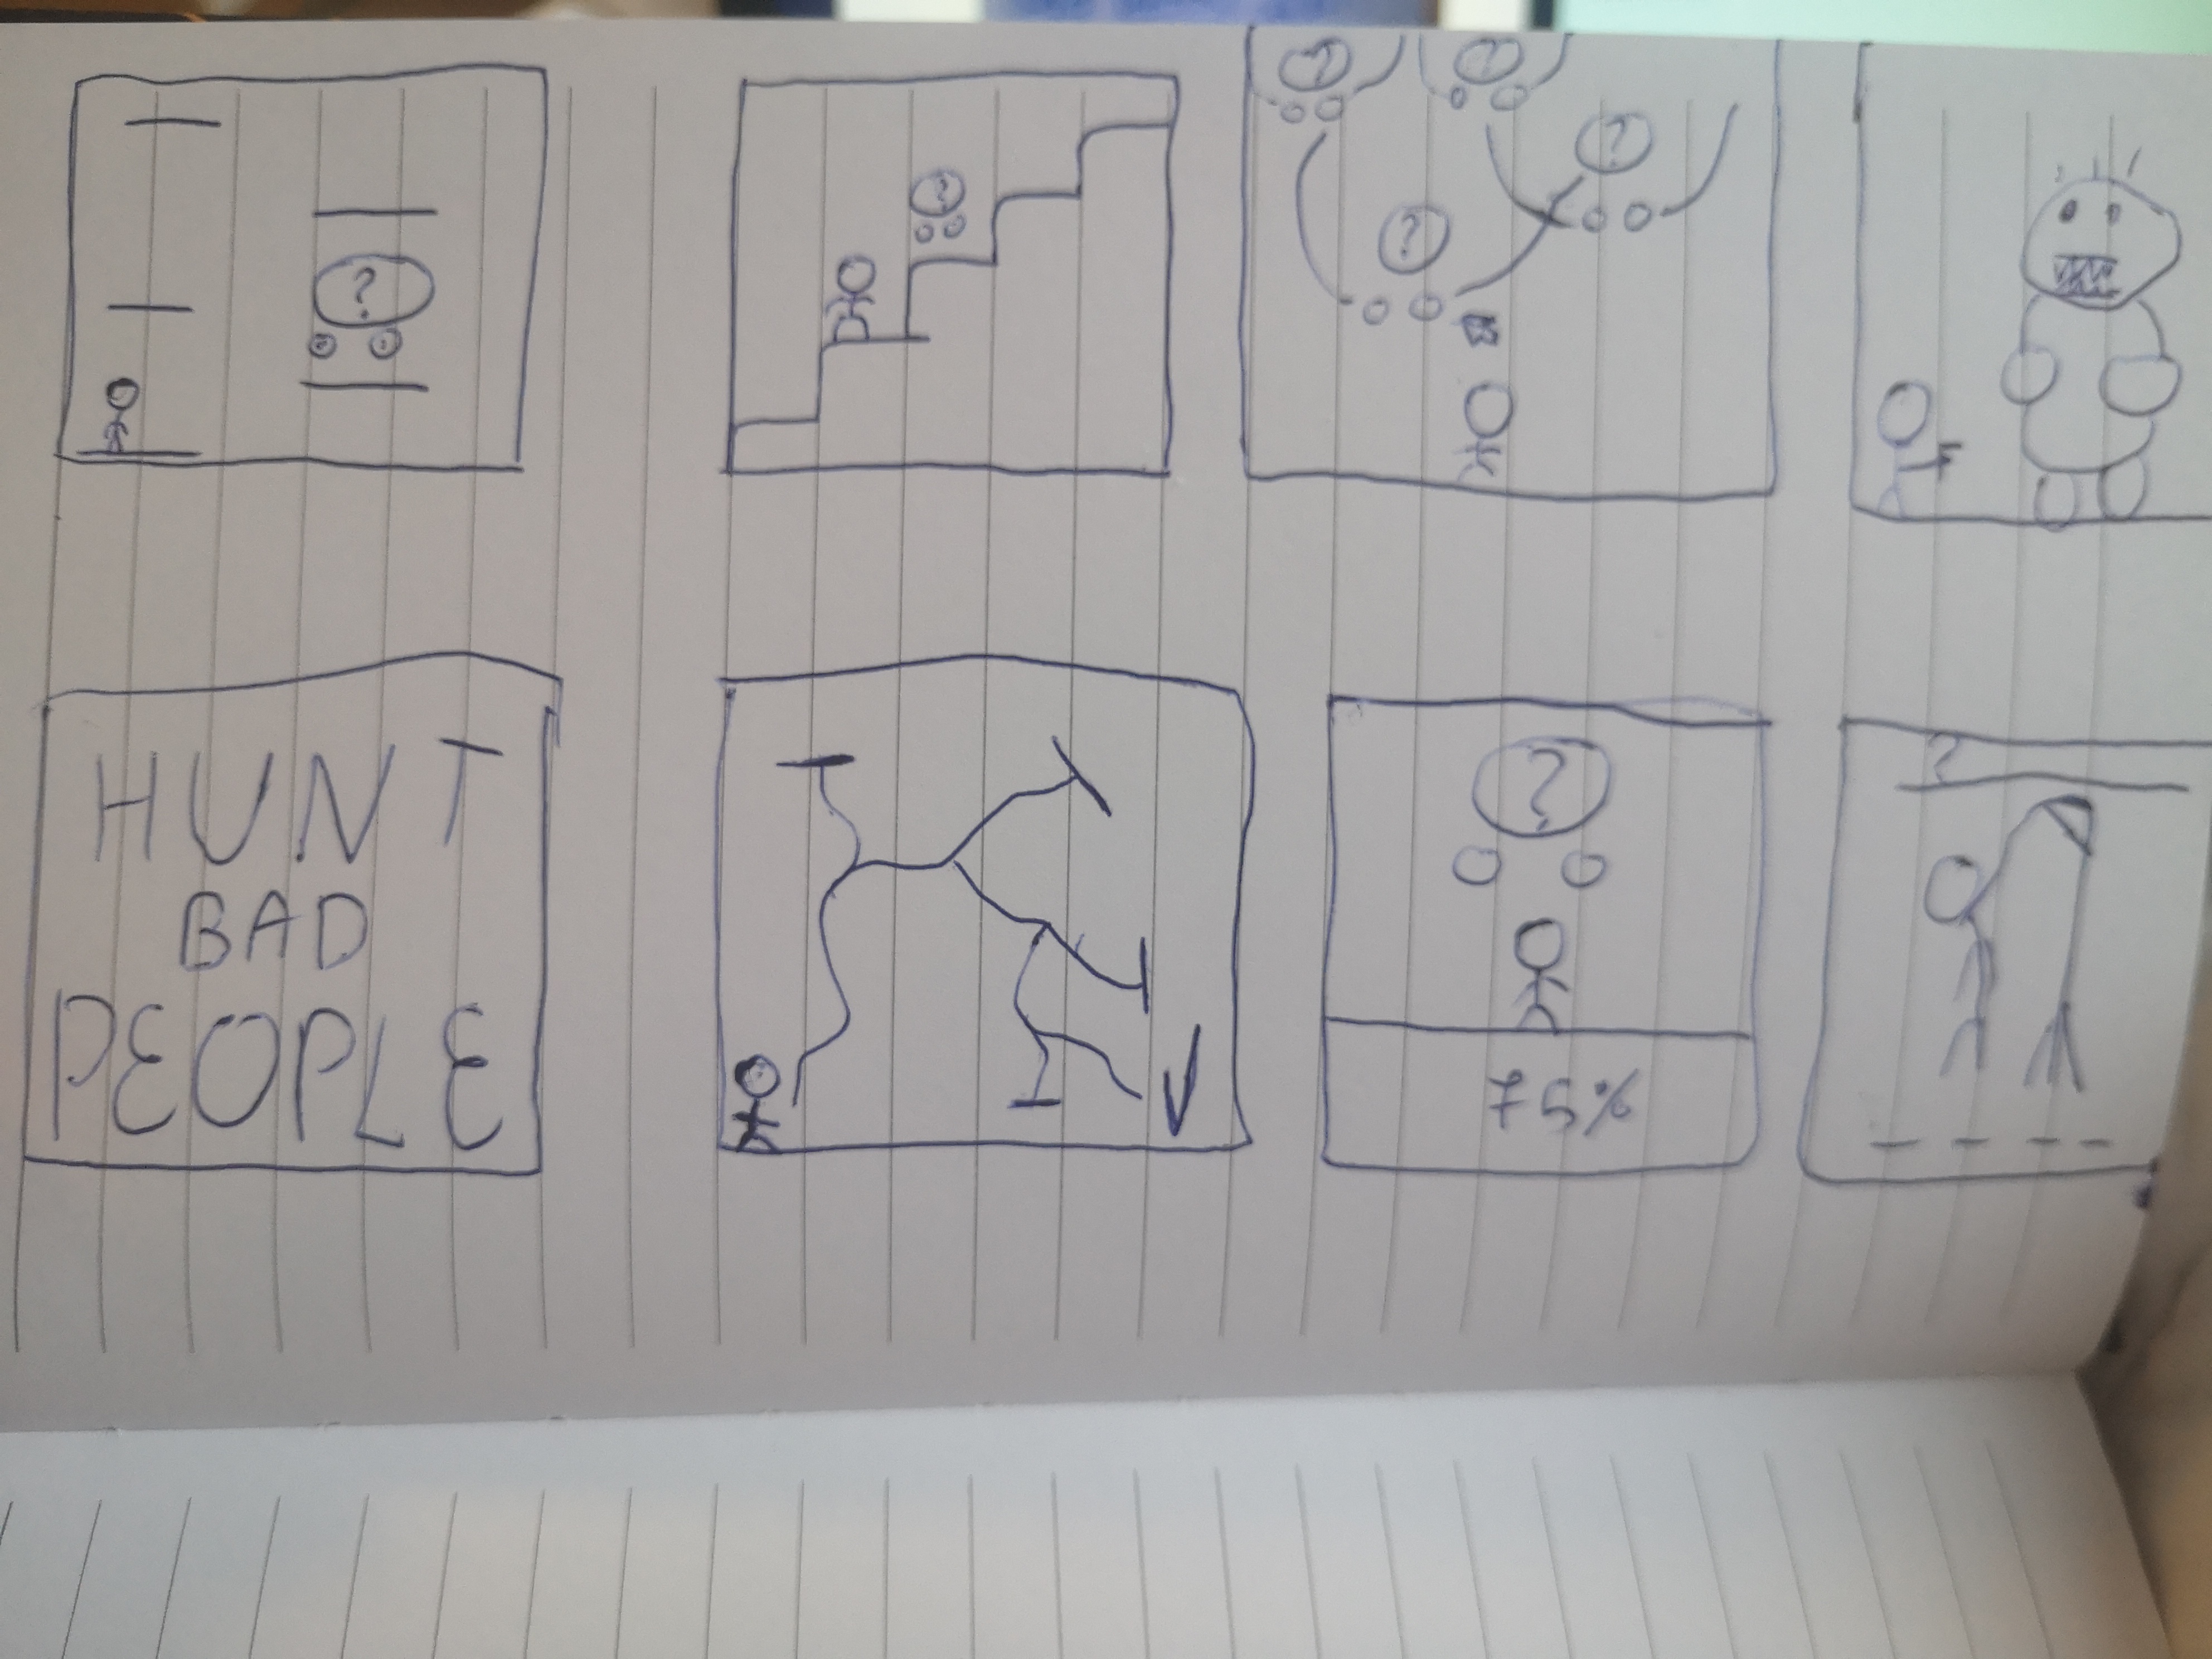 ?
?
?
?
?
?
HUNT
BAD
PEOPLE
?
75%
?